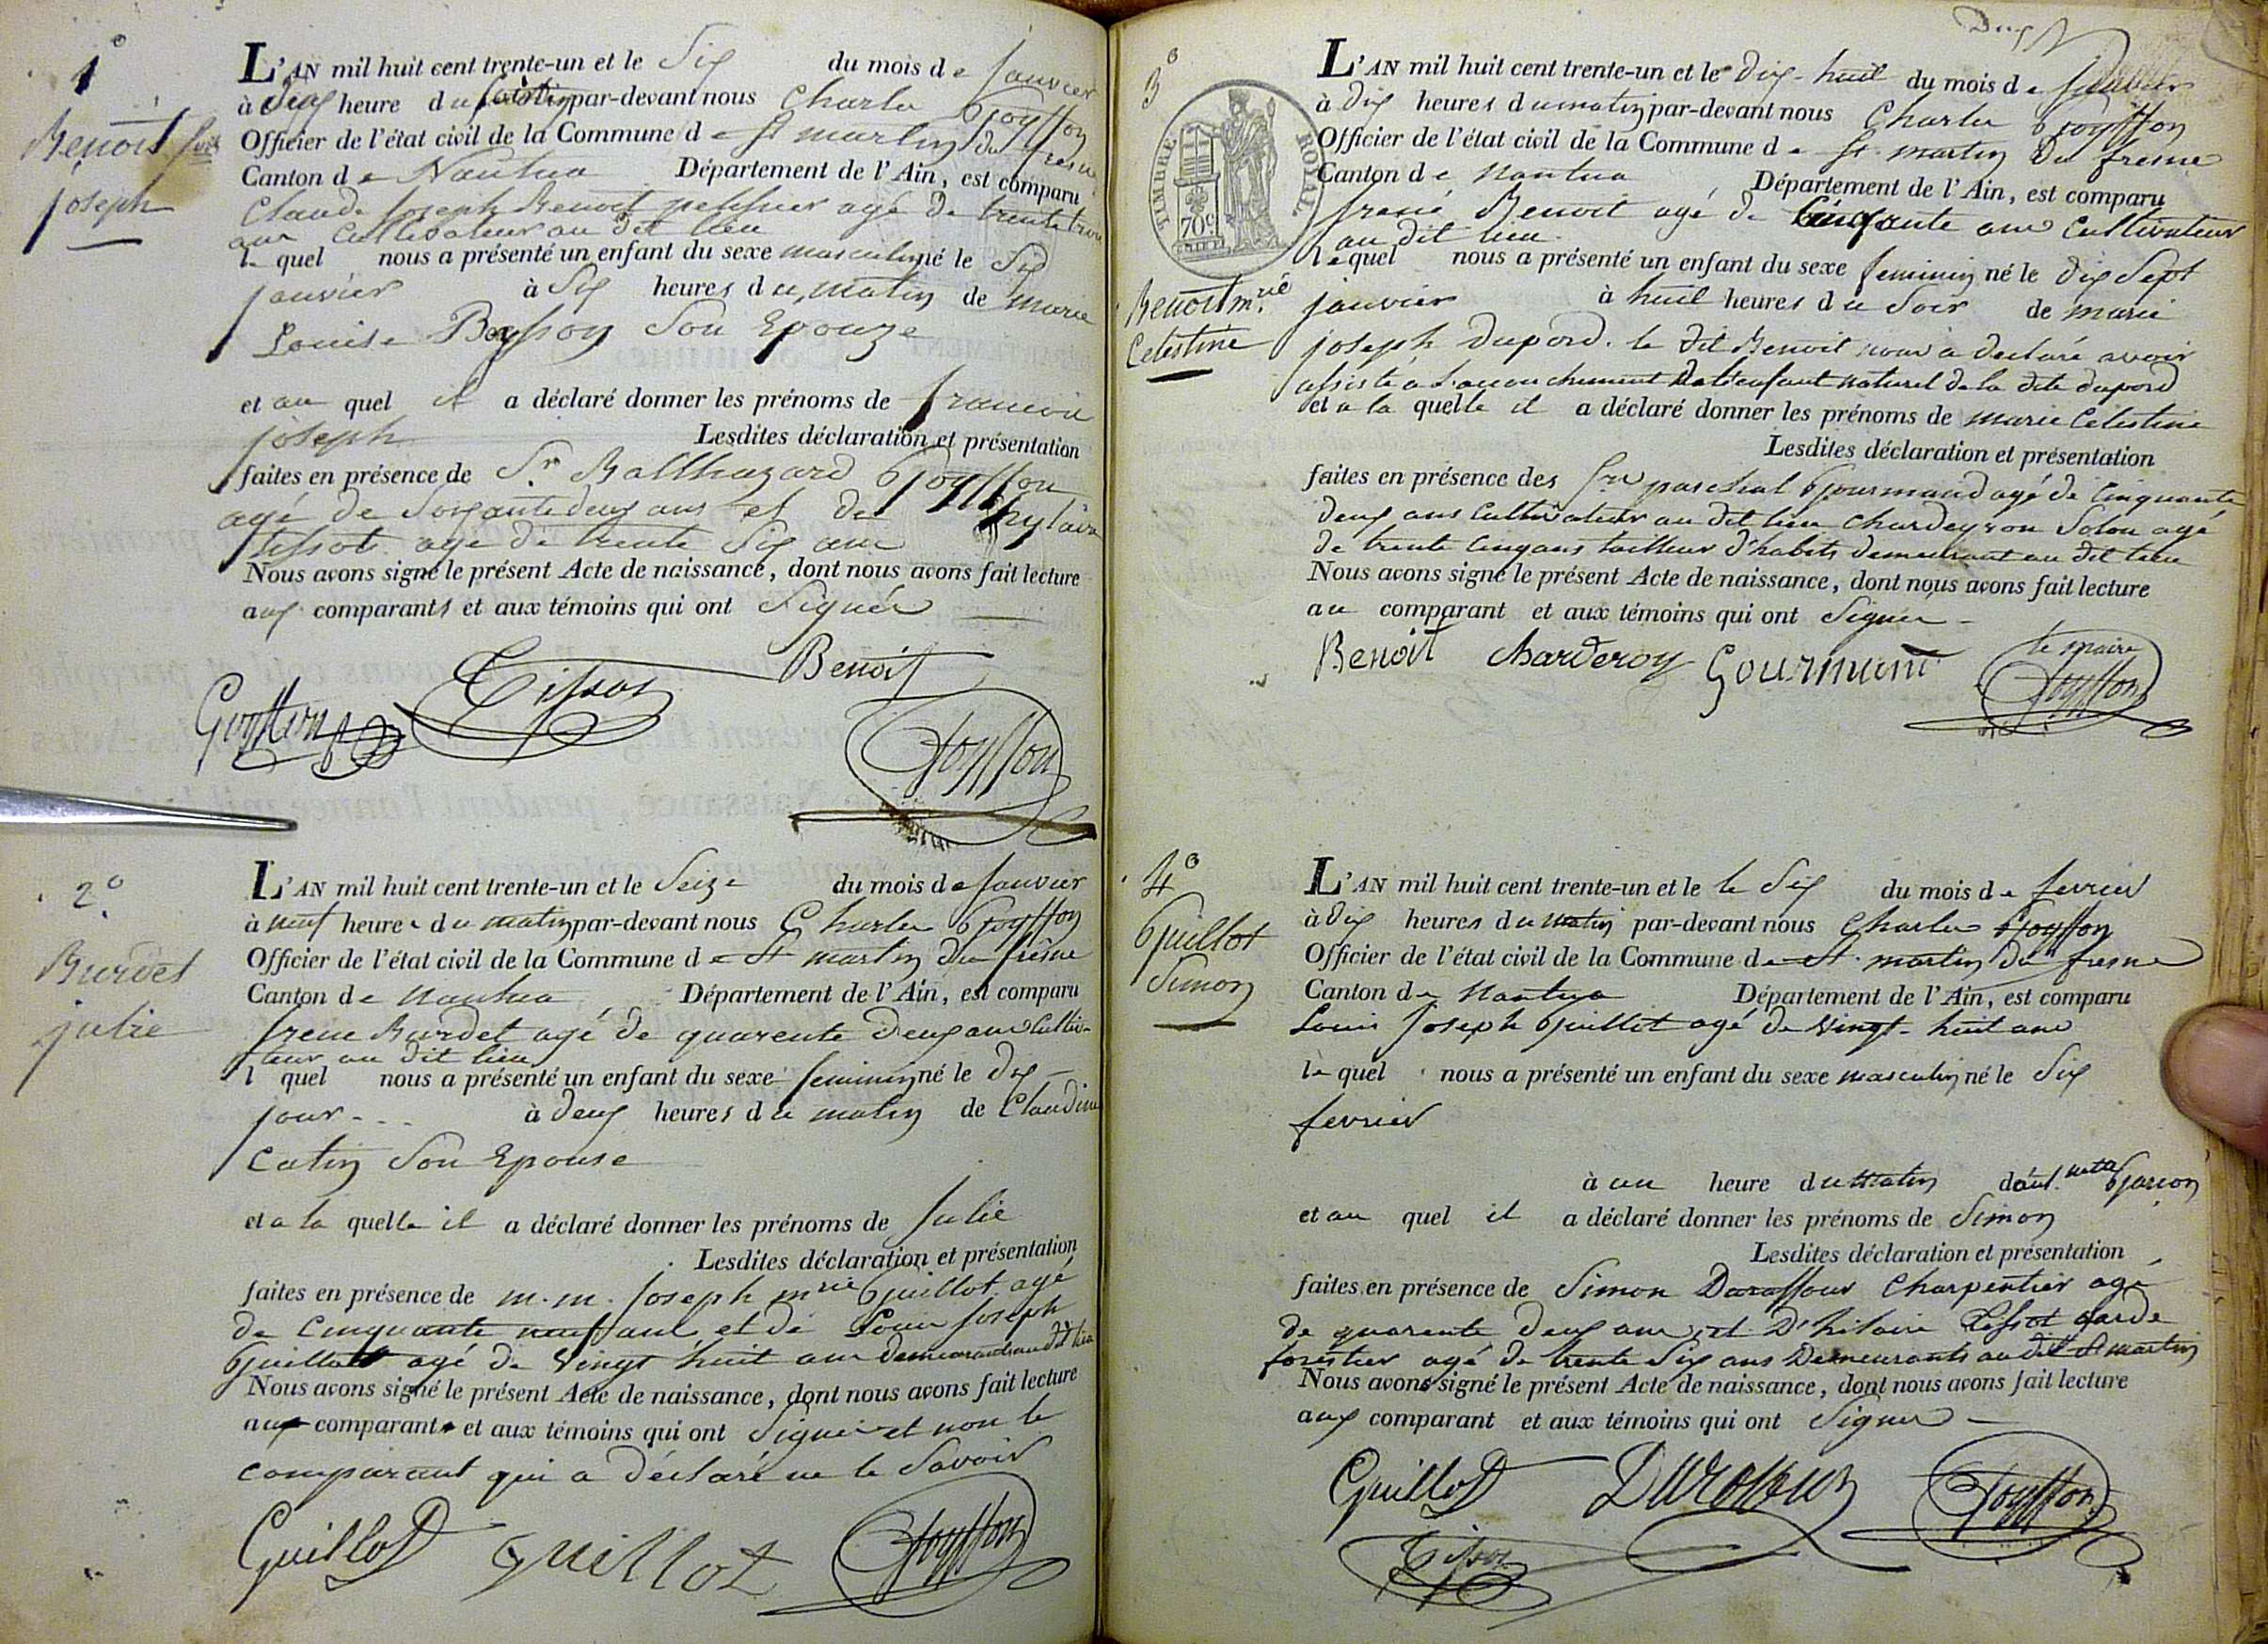 1°
Benoit fois
joseph
L'AN mil huit cent trente-un et le Six du mois de janvier
à deux heure du par-devant nous Charles Goyffon
Officier de l'état civil de la Commune de St martin du fresne
Canton de Nantua Département de l'Ain, est comparu
Claude joseph Benoit agé de trente trois
ans Cultivateur au dit lieu
le quel nous a présenté un enfant du sexe masculin né le Six
janvier à Six heures du matin de marie
Louise Son Epouze
et au quel il a déclaré donner les prénoms de francois
joseph Lesdites déclaration et présentation
faites en présence de Sr. Balthazard Goyffon
agé de Soixante deux ans et de hylaire
tissot agé de trente Six ans
Nous avons signé le présent Acte de naissance, dont nous avons fait lecture
aux comparants et aux témoins qui ont Signés
Benoit
Tissot
Goyffon
Goyffon
2°
Burdet
julie
L'AN mil huit cent trente-un et le Seize du mois de janvier
à neuf heures du matin par-devant nous Charles Goyffon
Officier de l'état civil de la Commune de St martin du frêsne
Canton de Nantua Département de l'Ain, est comparu
frene Burdet agé de quarente deux ans Cultiv-
teur au dit lieu
l quel nous a présenté un enfant du sexe feminin né le dix
jour - - - à deux heures du matin de Claudine
Catin Son Epouse
et a la quelle il a déclaré donner les prénoms de Julie
Lesdites déclaration et présentation
faites en présence de m. m. Joseph mrie Guillot agé
de Cinquante neuf ans et de Louis Joseph
Guillot agé de vingt huit ans demeurants au dit lieu
Nous avons signé le présent Acte de naissance, dont nous avons fait lecture
aux comparants et aux témoins qui ont Signés et non le
comparant qui a déclaré ne le Savoir
Guillot Guillot Goyffon
Deux
3°
TIMBRE ROYAL
70c
Benoit mrie
Celestine
L'AN mil huit cent trente-un et le dix-huit du mois de janvier
à dix heures du matin par-devant nous Charles Goyffon
Officier de l'état civil de la Commune de St martin du fresne
Canton de Nantua Département de l'Ain, est comparu
frené Benoit agé de Cinquante ans Cultivateur
au dit lieu
lequel nous a présenté un enfant du sexe feminin né le dix Sept
janvier à huit heures du Soir de marie
joseph dupord. le dit Benoit nous a déclaré avoir
assisté à l'accouchement de l'enfant naturel de la dite dupord
et a la quelle il a déclaré donner les prénoms de marie Celestine
Lesdites déclaration et présentation
faites en présence des Srs paschal Gourmand agé de Cinquante
deux ans Cultivateur au dit lieu Chardeyron Solon agé
de trente Cinq ans tailleur d'habits demeurant au dit lieu
Nous avons signé le présent Acte de naissance, dont nous avons fait lecture
au comparant et aux témoins qui ont Signés
Benoit Charderoy Gourmand le maire
Goyffon
4°
Guillot
Simon
L'AN mil huit cent trente-un et le le Six du mois de fevrier
à dix heures du matin par-devant nous Charles Goyffon
Officier de l'état civil de la Commune de St. martin du fresne
Canton de Nantua Département de l'Ain, est comparu
Louis Joseph Guillot agé de Vingt-huit ans
le quel nous a présenté un enfant du sexe masculin né le Six
fevrier
à un heure du matin
et au quel il a déclaré donner les prénoms de Simon
Lesdites déclaration et présentation
faites en présence de Simon Charpentier agé
de quarente deux ans, et D'hilaire tissot garde
forestier agé de trente Six ans Demeurants au dit St martin
Nous avons signé le présent Acte de naissance, dont nous avons fait lecture
aux comparant et aux témoins qui ont Signés
Guillot Goyffon
Tissot